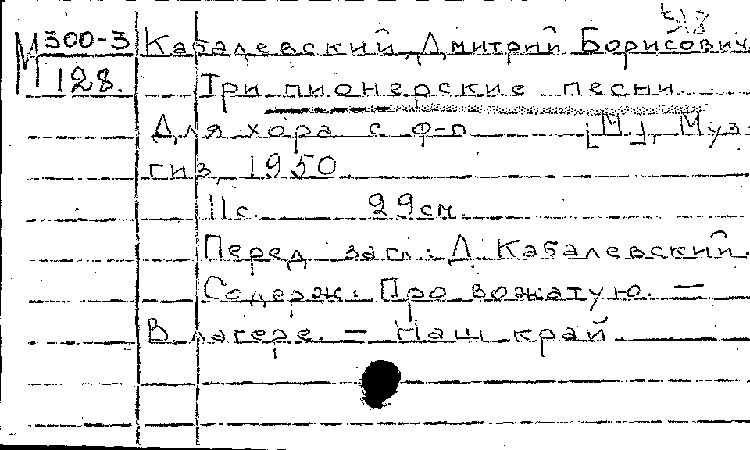 М 300-3 Кабалевский, Дмитрий Борисович
128. Три пионерские песни
Для хора с ф-п [М.], Муз-
гиз, 1950.
11с. 29см.
Перед загл.: Д. Кабалевский.
Содерж.: Про вожатую. —
В лагере. — Наш край.